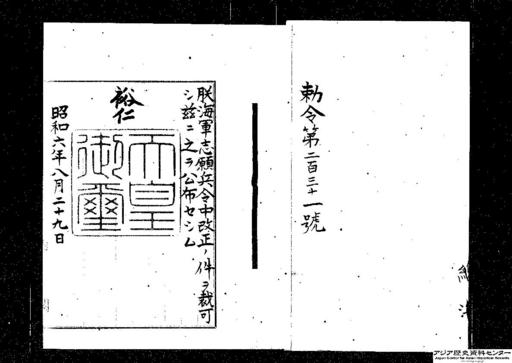 勅令第二百三十一號
朕海軍志願兵令中改正ノ件ヲ裁可
シ茲ニ之ヲ公布セシム
裕仁
天皇御璽
昭和六年八月二十九日
アジア歴史資料センター
Japan Center for Asian Historical Records